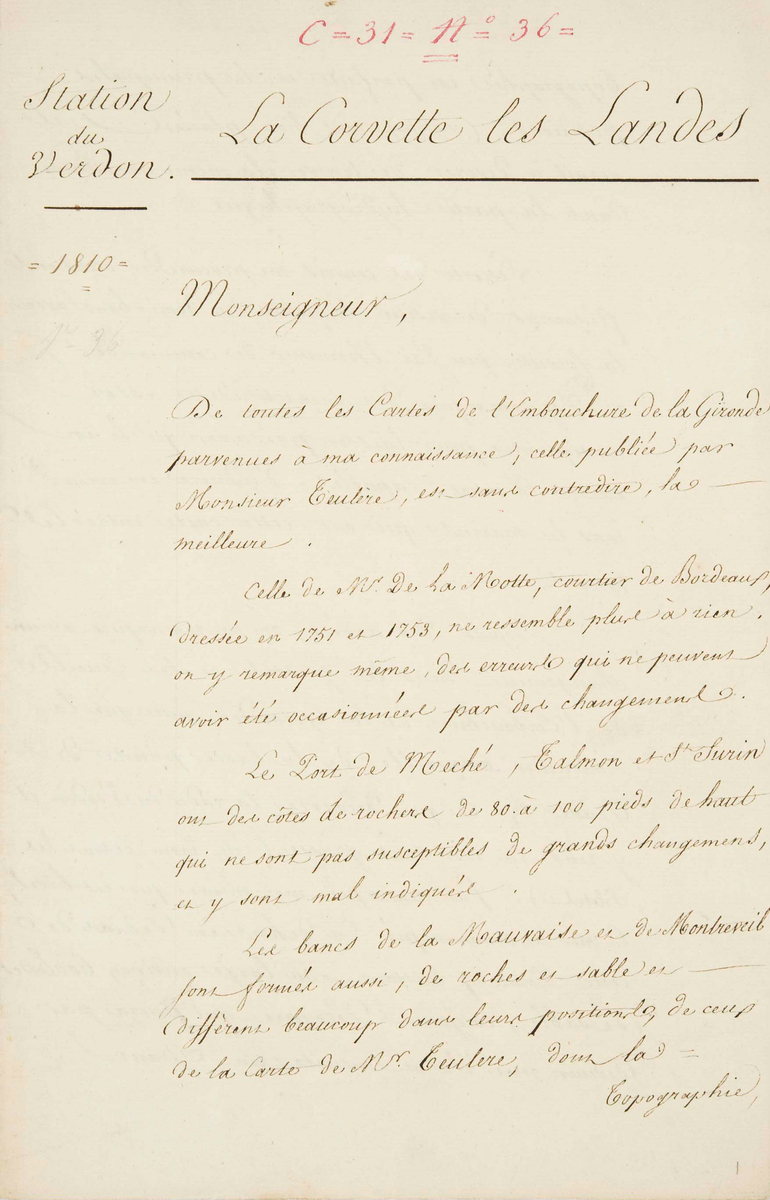 C = 31 = N° 36 =
Station
du
Verdon.
La Corvette les Landes
= 1810 =
N° 36
Monseigneur,
De toutes les Cartes de l'Embouchure de la Gironde
parvenues à ma connaissance, celle publiée par
Monsieur Teulère, est sans contredire, la
meilleure.
Celle de Mr. De La Motte, courtier de Bordeaux,
dressée en 1751 et 1753, ne ressemble plus à rien.
on y remarque même, des erreurs qui ne peuvent
avoir été occasionnées par des changements.
Le Port de Meché, Talmon et St Surin
ont des côtes de rochers de 80. à 100 pieds de haut
qui ne sont pas susceptibles de grands changemens,
et y sont mal indiqués.
Les bancs de la Mauvaise et de Montreveil
sont formés aussi, de roches et sable et
diffèrent beaucoup dans leurs positions, de ceux
de la Carte de Mr. Teulere, dont la =
Topographie,
1